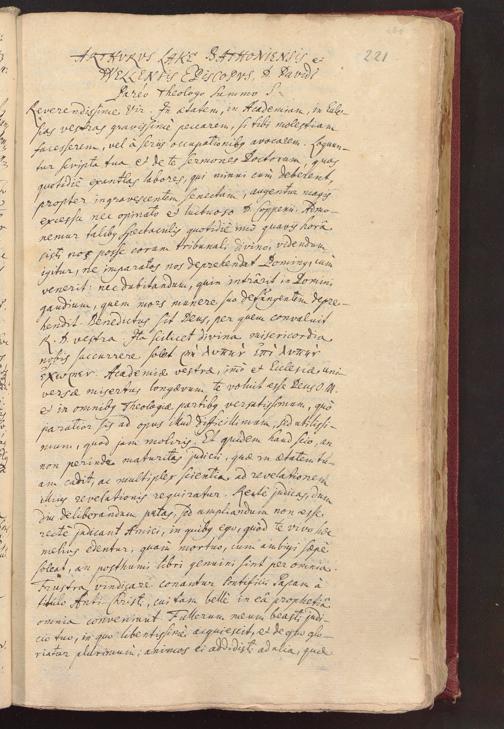 221
ARTHURUS LAKE BATHONIENSIS et
WELLENSIS EPISCOPUS, D. Davidi
Pareo Theologo Summo S.
Reverendissime Vir. In ætatem, in Academiam, in Eccle-
sias vestras gravissimè peccarem, si tibi molestiam
facesserem, vel à serijs occupationibus avocarem. Loquun-
tur scripta tua et de te sermones Doctorum, quos
quotidiè exantlas labores, qui minui cùm deberent,
propter ingravescentem senectam, augentur magis
excessu nec opinato et luctuoso D. Coppenij. Admo-
nemur talibus spectaculis quotidiè imò quavis horâ
sisti nos posse coram tribunali divino, videndum
igitur, ne imparatos nos deprehendat Dominus, cùm
venerit: nec dubitandum, quin intrârit in Domini
gaudium, quem mors munere suo defungentem depre-
hendit. Benedictus sit Deus, per quem convaluit
R. D. vestra. Ita scilicet divina misericordia
nobis succurrere solet μὴ λύπην ἐπὶ λύπην
Academiæ vestræ, imò et Ecclesiæ uni-
versæ misertus longævum te voluit esse Deus O. M.
et in omnibus Theologiæ partibus versatissimum, quò
paratior sis ad opus illud difficillimum, sed utilissi-
mum, quod jam moliris. Et quidem haud scio, an
non perinde maturitas judicii, quæ in ætatem tu-
am cadit, ac multiplex scientia, ad revelationem
illius revelationis requiratur. Rectè judicas, dum
diu deliberandum putas, sed ampliandum non esse,
rectè judicant Amici, in quibus ego, quod te vivo hæc
meliùs edentur, quàm mortuo, cùm ambigi sæpè
soleat, an posthumi libri genuini sint per omnia.
Frustra vindicare conantur Pontificii Papam à
titulo Anti-Christi, cui tam bellè in eâ prophetiâ
omnia conveniunt. Fullerum meum beasti judi-
cio tuo, in quo libentissimè acquiescit, et de quo glo-
riatur plurimum; animos ei addidisti ad alia, quæ